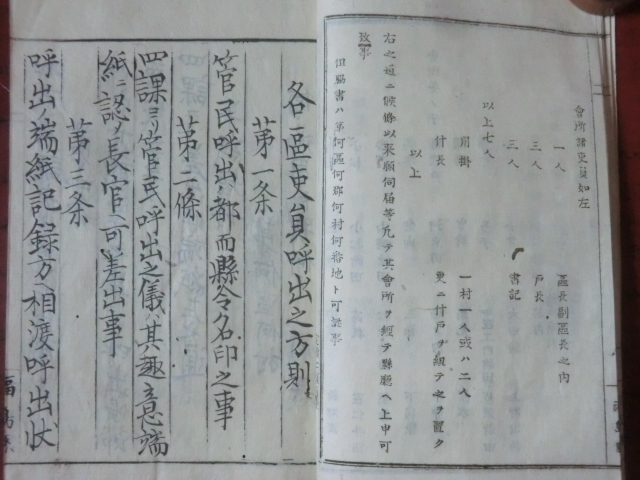 會所諸吏員如左
一人 區長副區長之内
三人 戸長
三人 書記
以上七人
用掛 一村一人或ハ二人
什長 更ニ什戸ヲ組テ之ヲ置ク
以上
右之通ニ候條以来願伺届等凡テ其會所ヲ經テ縣廳ヘ上申可
致事
但脇書ハ第何區何郡何村何番地ト可認事
各區吏員呼出之方則
第一条
管民呼出ハ都而縣令名印之事
第二條
四課ヨリ管民呼出之儀ハ其趣意端
紙ニ認メ長官ヘ可差出事
第三条
呼出ノ端紙記録方ヘ相渡呼出状
福島縣